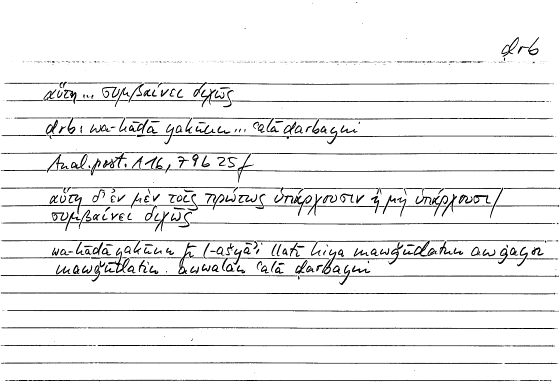 ḍrb
αὕτη... συμβαίνει διχῶς
ḍrb: wa-hāḏā yakūnu... ʿalā ḍarbayni
Anal. post. I 16, 79b 25 f
αὕτη δ' ἐν μὲν τοῖς πρώτως ὑπάρχουσιν ἢ μὴ ὑπάρχουσι/
συμβαίνει διχῶς
wa-hāḏā yakūnu fī l-ašyāʾi llatī hiya mawǧūdatun aw ġayru
mawǧūdatin awwalan ʿalā ḍarbayni